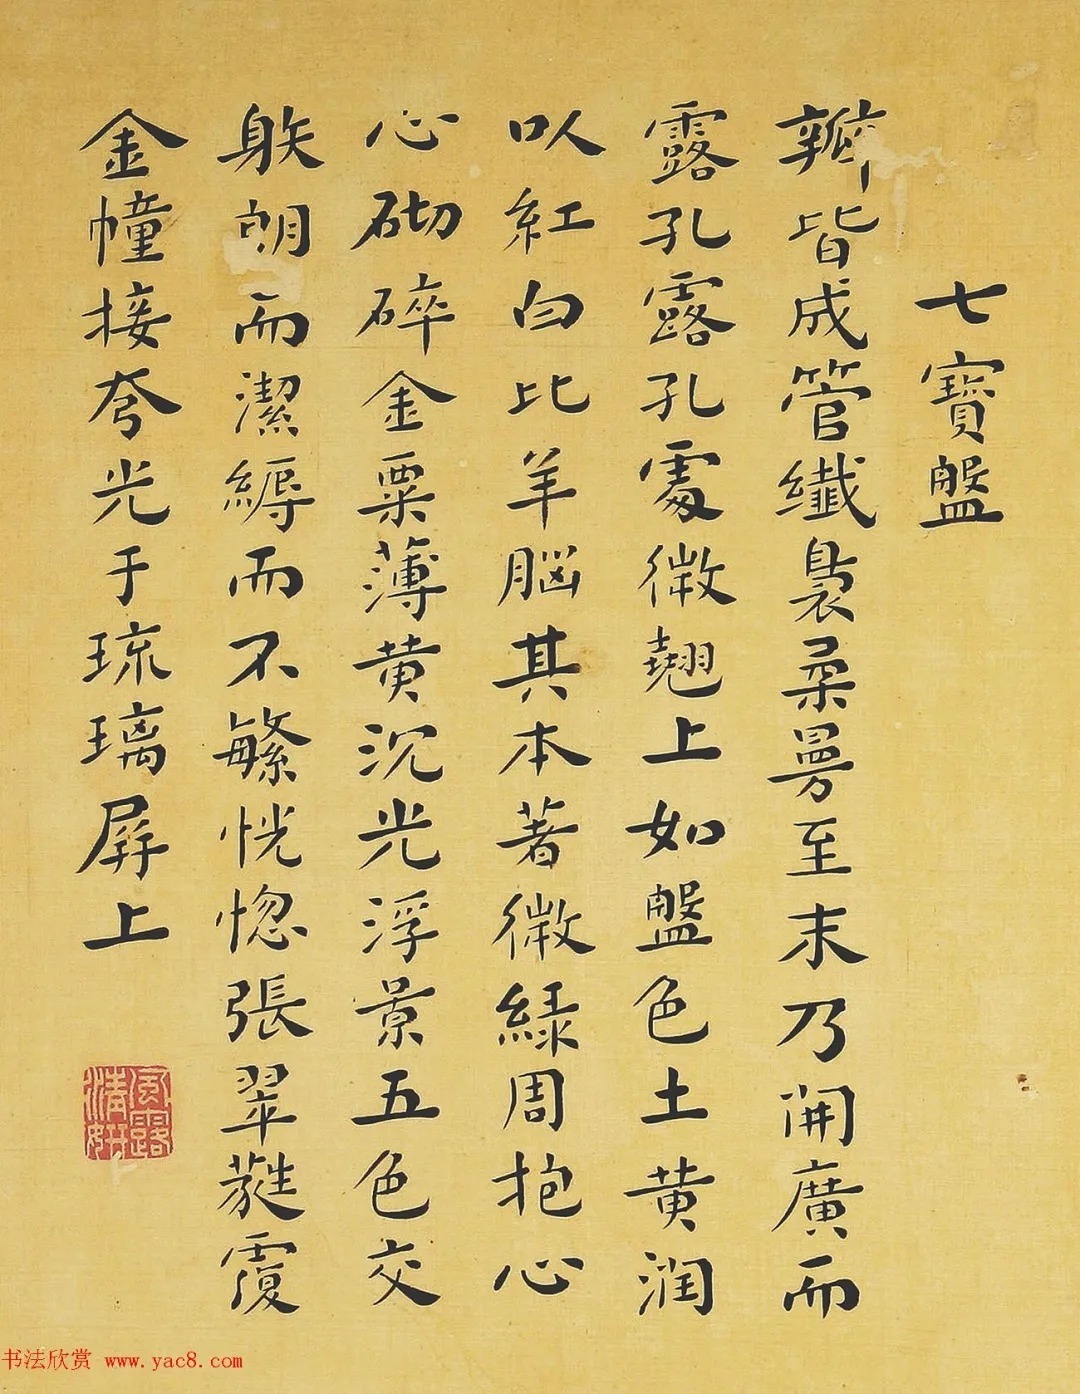 七寶盤
瓣皆成管纖裊柔曼至末乃開廣而
露孔露孔處微翹上如盤色土黄潤
以紅白比羊腦其本著微緑周抱心
心砌碎金粟薄黄沉光浮景五色交
躾朗而潔縟而不繁恍惚張翠蕤覆
金幢接夸光于琉璃屏上
书法欣赏 www.yac8.com